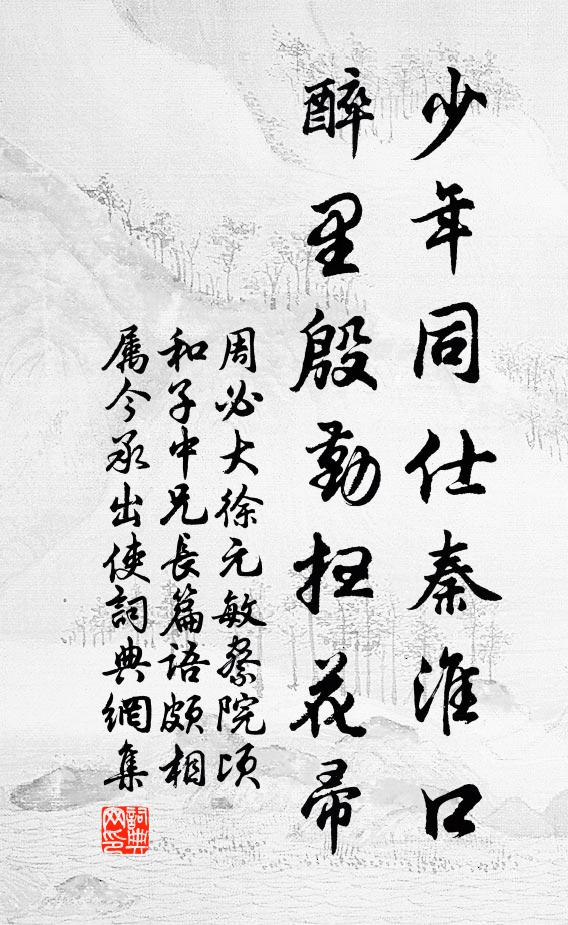 少年同仕秦淮口
醉里殷勤扫花帚
周必大徐元敏察院頃
和子中兄長篇語頗相
属今承出使詞典網集
詞典
网印